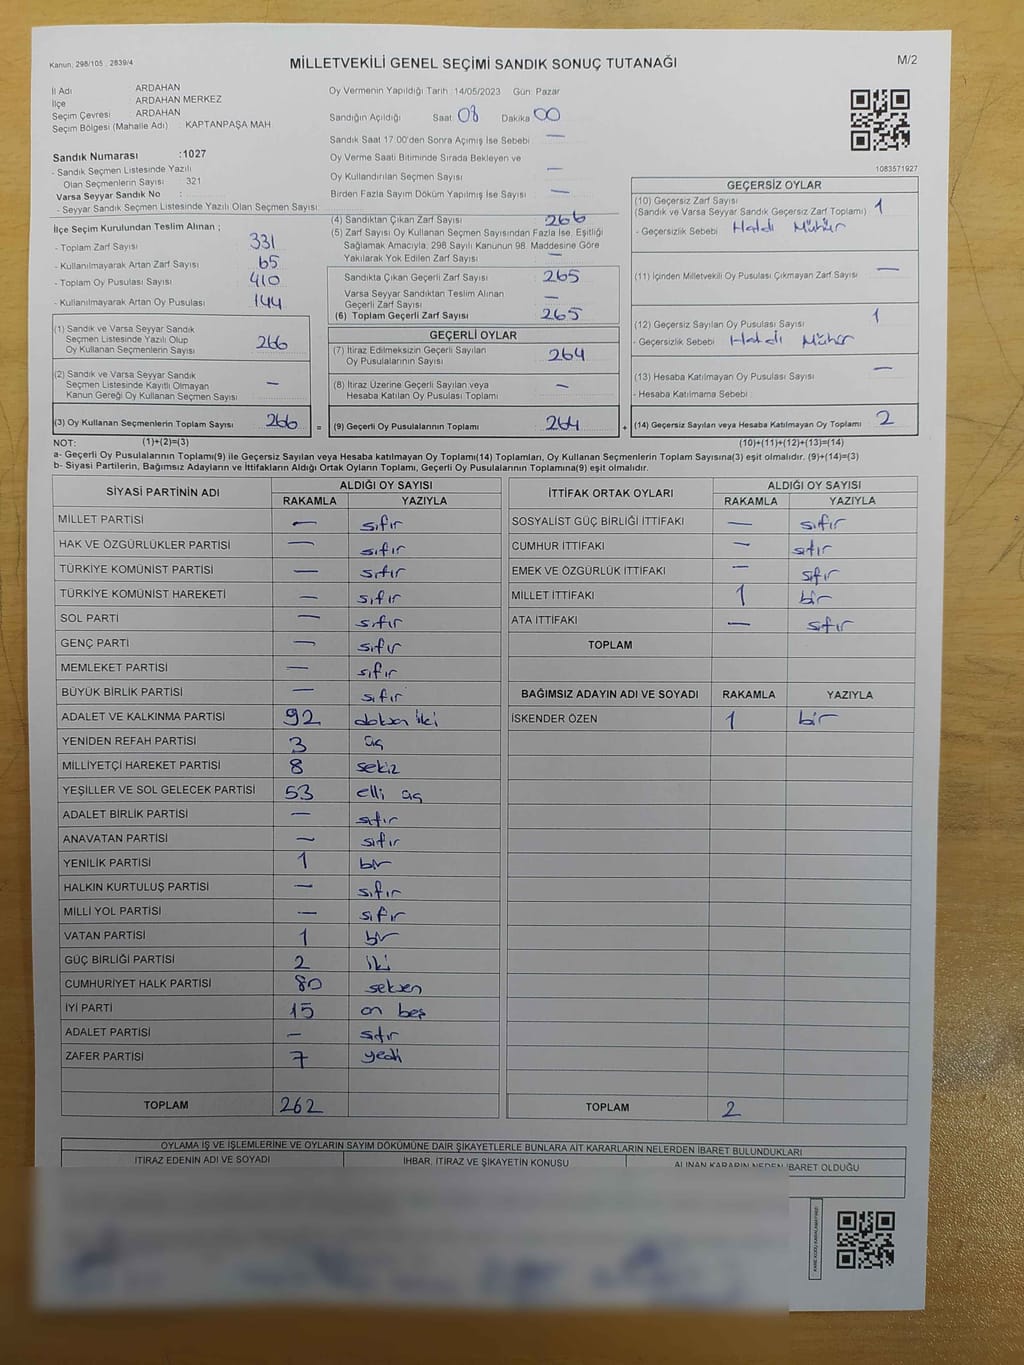 Kanun; 298/105 , 2839/4
MİLLETVEKİLİ GENEL SEÇİMİ SANDIK SONUÇ TUTANAĞI
M/2
İl Adı ARDAHAN
İlçe ARDAHAN MERKEZ
Seçim Çevresi ARDAHAN
Seçim Bölgesi (Mahalle Adı) : KAPTANPAŞA MAH
Sandık Numarası :1027
- Sandık Seçmen Listesinde Yazılı
Olan Seçmenlerin Sayısı : 321
Varsa Seyyar Sandık No :
- Seyyar Sandık Seçmen Listesinde Yazılı Olan Seçmen Sayısı:
Oy Vermenin Yapıldığı Tarih :14/05/2023 Gün: Pazar
Sandığın Açıldığı Saat 08 Dakika 00
Sandık Saat 17:00'den Sonra Açımış İse Sebebi —
Oy Verme Saati Bitiminde Sırada Bekleyen ve
Oy Kullandırılan Seçmen Sayısı —
Birden Fazla Sayım Döküm Yapılmış İse Sayısı —
1083571927
İlçe Seçim Kurulundan Teslim Alınan ;
- Toplam Zarf Sayısı 331
- Kullanılmayarak Artan Zarf Sayısı 65
- Toplam Oy Pusulası Sayısı 410
- Kullanılmayarak Artan Oy Pusulası 144
(1) Sandık ve Varsa Seyyar Sandık
Seçmen Listesinde Yazılı Olup
Oy Kullanan Seçmenlerin Sayısı 266
(2) Sandık ve Varsa Seyyar Sandık
Seçmen Listesinde Kayıtlı Olmayan
Kanun Gereği Oy Kullanan Seçmen Sayısı —
(3) Oy Kullanan Seçmenlerin Toplam Sayısı 266 =
(4) Sandıktan Çıkan Zarf Sayısı 266
(5) Zarf Sayısı Oy Kullanan Seçmen Sayısından Fazla İse, Eşitliği
Sağlamak Amacıyla; 298 Sayılı Kanunun 98. Maddesine Göre
Yakılarak Yok Edilen Zarf Sayısı —
Sandıkta Çıkan Geçerli Zarf Sayısı 265
Varsa Seyyar Sandıktan Teslim Alınan
Geçerli Zarf Sayısı —
(6) Toplam Geçerli Zarf Sayısı 265
GEÇERLİ OYLAR
(7) İtiraz Edilmeksizin Geçerli Sayılan
Oy Pusulalarının Sayısı 264
(8) İtiraz Üzerine Geçerli Sayılan veya
Hesaba Katılan Oy Pusulası Toplamı —
(9) Geçerli Oy Pusulalarının Toplamı 264 +
GEÇERSİZ OYLAR
(10) Geçersiz Zarf Sayısı 1
(Sandık ve Varsa Seyyar Sandık Geçersiz Zarf Toplamı)
- Geçersizlik Sebebi : Hatalı Mühür
(11) İçinden Milletvekili Oy Pusulası Çıkmayan Zarf Sayısı —
(12) Geçersiz Sayılan Oy Pusulası Sayısı 1
- Geçersizlik Sebebi : Hatalı Mühür
(13) Hesaba Katılmayan Oy Pusulası Sayısı —
- Hesaba Katılmama Sebebi :
(14) Geçersiz Sayılan veya Hesaba Katılmayan Oy Toplamı 2
NOT: (1)+(2)=(3) (10)+(11)+(12)+(13)=(14)
a- Geçerli Oy Pusulalarının Toplamı(9) ile Geçersiz Sayılan veya Hesaba Katılmayan Oy Toplamı(14) Toplamları, Oy Kullanan Seçmenlerin Toplam Sayısına(3) eşit olmalıdır. (9)+(14)=(3)
b- Siyasi Partilerin, Bağımsız Adayların ve İttifakların Aldığı Ortak Oyların Toplamı, Geçerli Oy Pusulalarının Toplamına(9) eşit olmalıdır.
SİYASİ PARTİNİN ADI ALDIĞI OY SAYISI
RAKAMLA YAZIYLA
MİLLET PARTİSİ — sıfır
HAK VE ÖZGÜRLÜKLER PARTİSİ — sıfır
TÜRKİYE KOMÜNİST PARTİSİ — sıfır
TÜRKİYE KOMÜNİST HAREKETİ — sıfır
SOL PARTİ — sıfır
GENÇ PARTİ — sıfır
MEMLEKET PARTİSİ — sıfır
BÜYÜK BİRLİK PARTİSİ — sıfır
ADALET VE KALKINMA PARTİSİ 92 doksan iki
YENİDEN REFAH PARTİSİ 3 üç
MİLLİYETÇİ HAREKET PARTİSİ 8 sekiz
YEŞİLLER VE SOL GELECEK PARTİSİ 53 elli üç
ADALET BİRLİK PARTİSİ — sıfır
ANAVATAN PARTİSİ — sıfır
YENİLİK PARTİSİ 1 bir
HALKIN KURTULUŞ PARTİSİ — sıfır
MİLLİ YOL PARTİSİ — sıfır
VATAN PARTİSİ 1 bir
GÜÇ BİRLİĞİ PARTİSİ 2 iki
CUMHURİYET HALK PARTİSİ 80 seksen
İYİ PARTİ 15 on beş
ADALET PARTİSİ — sıfır
ZAFER PARTİSİ 7 yedi
TOPLAM 262
İTTİFAK ORTAK OYLARI ALDIĞI OY SAYISI
RAKAMLA YAZIYLA
SOSYALİST GÜÇ BİRLİĞİ İTTİFAKI — sıfır
CUMHUR İTTİFAKI — sıfır
EMEK VE ÖZGÜRLÜK İTTİFAKI — sıfır
MİLLET İTTİFAKI 1 bir
ATA İTTİFAKI — sıfır
TOPLAM
BAĞIMSIZ ADAYIN ADI VE SOYADI RAKAMLA YAZIYLA
İSKENDER ÖZEN 1 bir
TOPLAM 2
OYLAMA İŞ VE İŞLEMLERİNE VE OYLARIN SAYIM DÖKÜMÜNE DAİR ŞİKAYETLERLE BUNLARA AİT KARARLARIN NELERDEN İBARET BULUNDUKLARI
İTİRAZ EDENİN ADI VE SOYADI İHBAR, İTİRAZ VE ŞİKAYETİN KONUSU ALINAN KARARIN NEDEN İBARET OLDUĞU